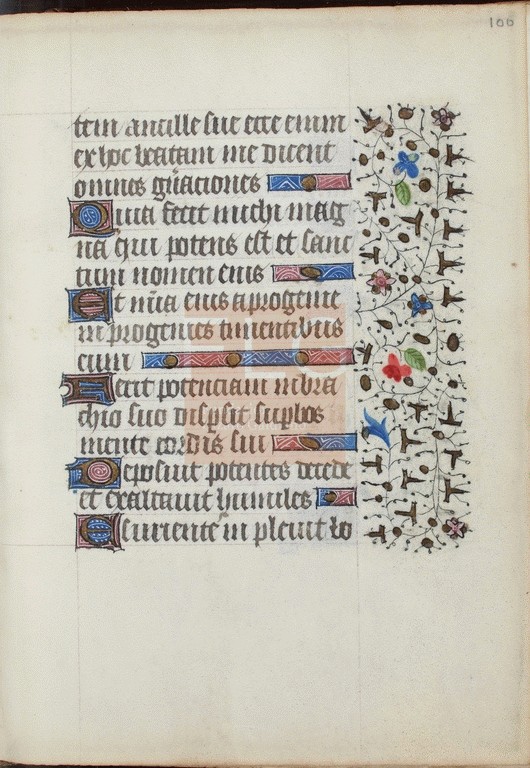 100
tem ancille sue ecce enim
ex hoc beatam me dicent
omnes gñaciones
Quia fecit michi mag
na qui potens est et sanc
tum nomen eius
Et mĩa eius a progenie
in progenies timentibus
eum
Fecit potenciam in bra
chio suo dispsit supbos
mente cordis sui
Deposuit potentes de sede
et exaltauit humiles
Esuriente in pleuit bo